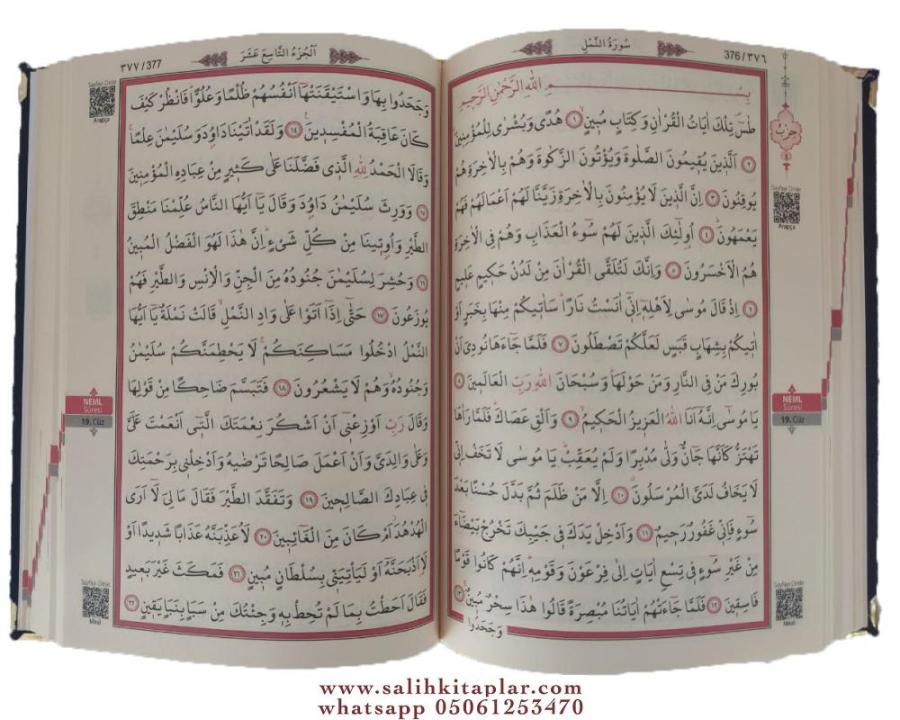 سُورَةُ النَّمْلِ
376/٣٧٦
بِسْمِ اللّٰهِ الرَّحْمٰنِ الرَّحِيمِ
طٰسٓ تِلْكَ اٰيَاتُ الْقُرْاٰنِ وَكِتَابٍ مُبِينٍ ﴿١﴾ هُدًى وَبُشْرٰى لِلْمُؤْمِنِينَ
﴿٢﴾ اَلَّذِينَ يُقِيمُونَ الصَّلٰوةَ وَيُؤْتُونَ الزَّكٰوةَ وَهُمْ بِالْاٰخِرَةِ هُمْ
يُوقِنُونَ ﴿٣﴾ اِنَّ الَّذِينَ لَا يُؤْمِنُونَ بِالْاٰخِرَةِ زَيَّنَّا لَهُمْ اَعْمَالَهُمْ فَهُمْ
يَعْمَهُونَ ﴿٤﴾ اُو۬لٰٓئِكَ الَّذِينَ لَهُمْ سُٓوءُ الْعَذَابِ وَهُمْ فِي الْاٰخِرَةِ
هُمُ الْاَخْسَرُونَ ﴿٥﴾ وَاِنَّكَ لَتُلَقَّى الْقُرْاٰنَ مِنْ لَدُنْ حَكِيمٍ عَلِيمٍ
﴿٦﴾ اِذْ قَالَ مُوسٰى لِاَهْلِهِٓ اِنِّٓي اٰنَسْتُ نَارًا سَاٰتِيكُمْ مِنْهَا بِخَبَرٍ اَوْ
اٰتِيكُمْ بِشِهَابٍ قَبَسٍ لَعَلَّكُمْ تَصْطَلُونَ ﴿٧﴾ فَلَمَّا جَٓاءَهَا نُودِيَ اَنْ
بُورِكَ مَنْ فِي النَّارِ وَمَنْ حَوْلَهَا وَسُبْحَانَ اللّٰهِ رَبِّ الْعَالَمِينَ ﴿٨﴾
يَا مُوسٰٓى اِنَّهُٓ اَنَا اللّٰهُ الْعَزِيزُ الْحَكِيمُ ﴿٩﴾ وَاَلْقِ عَصَاكَ فَلَمَّا رَاٰهَا
تَهْتَزُّ كَاَنَّهَا جَٓانٌّ وَلّٰى مُدْبِرًا وَلَمْ يُعَقِّبْ يَا مُوسٰى لَا تَخَفْ اِنِّي
لَا يَخَافُ لَدَيَّ الْمُرْسَلُونَ ﴿١٠﴾ اِلَّا مَنْ ظَلَمَ ثُمَّ بَدَّلَ حُسْنًا بَعْدَ
سُٓوءٍ فَاِنِّي غَفُورٌ رَحِيمٌ ﴿١١﴾ وَاَدْخِلْ يَدَكَ فِي جَيْبِكَ تَخْرُجْ بَيْضَٓاءَ
مِنْ غَيْرِ سُٓوءٍ فِي تِسْعِ اٰيَاتٍ اِلٰى فِرْعَوْنَ وَقَوْمِهِ اِنَّهُمْ كَانُوا قَوْمًا
فَاسِقِينَ ﴿١٢﴾ فَلَمَّا جَٓاءَتْهُمْ اٰيَاتُنَا مُبْصِرَةً قَالُوا هٰذَا سِحْرٌ مُبِينٌ ﴿١٣﴾
وَجَحَدُوا
حزب
Sayfayı Dinle
Arapça
NEML
Sûresi
19. Cüz
Sayfayı Dinle
Meal
اَلْجُزْءُ التَّاسِعَ عَشَرَ
٣٧٧/377
وَجَحَدُوا بِهَا وَاسْتَيْقَنَتْهَٓا اَنْفُسُهُمْ ظُلْمًا وَعُلُوًّا فَانْظُرْ كَيْفَ
كَانَ عَاقِبَةُ الْمُفْسِدِينَ ﴿١٤﴾ وَلَقَدْ اٰتَيْنَا دَاوُ۫دَ وَسُلَيْمٰنَ عِلْمًا
وَقَالَا الْحَمْدُ لِلّٰهِ الَّذِي فَضَّلَنَا عَلٰى كَثِيرٍ مِنْ عِبَادِهِ الْمُؤْمِنِينَ
﴿١٥﴾ وَوَرِثَ سُلَيْمٰنُ دَاوُ۫دَ وَقَالَ يَٓا اَيُّهَا النَّاسُ عُلِّمْنَا مَنْطِقَ
الطَّيْرِ وَاُو۫تِينَا مِنْ كُلِّ شَيْءٍ اِنَّ هٰذَا لَهُوَ الْفَضْلُ الْمُبِينُ
﴿١٦﴾ وَحُشِرَ لِسُلَيْمٰنَ جُنُودُهُ مِنَ الْجِنِّ وَالْاِنْسِ وَالطَّيْرِ فَهُمْ
يُوزَعُونَ ﴿١٧﴾ حَتّٰٓى اِذَٓا اَتَوْا عَلٰى وَادِ النَّمْلِ قَالَتْ نَمْلَةٌ يَٓا اَيُّهَا
النَّمْلُ ادْخُلُوا مَسَاكِنَكُمْ لَا يَحْطِمَنَّكُمْ سُلَيْمٰنُ
وَجُنُودُهُ وَهُمْ لَا يَشْعُرُونَ ﴿١٨﴾ فَتَبَسَّمَ ضَاحِكًا مِنْ قَوْلِهَا
وَقَالَ رَبِّ اَوْزِعْنِٓي اَنْ اَشْكُرَ نِعْمَتَكَ الَّتِٓي اَنْعَمْتَ عَلَيَّ
وَعَلٰى وَالِدَيَّ وَاَنْ اَعْمَلَ صَالِحًا تَرْضٰيهُ وَاَدْخِلْنِي بِرَحْمَتِكَ
فِي عِبَادِكَ الصَّالِحِينَ ﴿١٩﴾ وَتَفَقَّدَ الطَّيْرَ فَقَالَ مَا لِيَ لَٓا اَرَى
الْهُدْهُدَ اَمْ كَانَ مِنَ الْغَٓائِبِينَ ﴿٢٠﴾ لَاُعَذِّبَنَّهُ عَذَابًا شَدِيدًا اَوْ
لَاَاذْبَحَنَّهُٓ اَوْ لَيَأْتِيَنِّي بِسُلْطَانٍ مُبِينٍ ﴿٢١﴾ فَمَكَثَ غَيْرَ بَعِيدٍ
فَقَالَ اَحَطْتُ بِمَا لَمْ تُحِطْ بِهِ وَجِئْتُكَ مِنْ سَبَاٍ بِنَبَاٍ يَقِينٍ ﴿٢٢﴾
Sayfayı Dinle
Arapça
NEML
Sûresi
19. Cüz
Sayfayı Dinle
Meal
www.salihkitaplar.com
whatsapp 05061253470